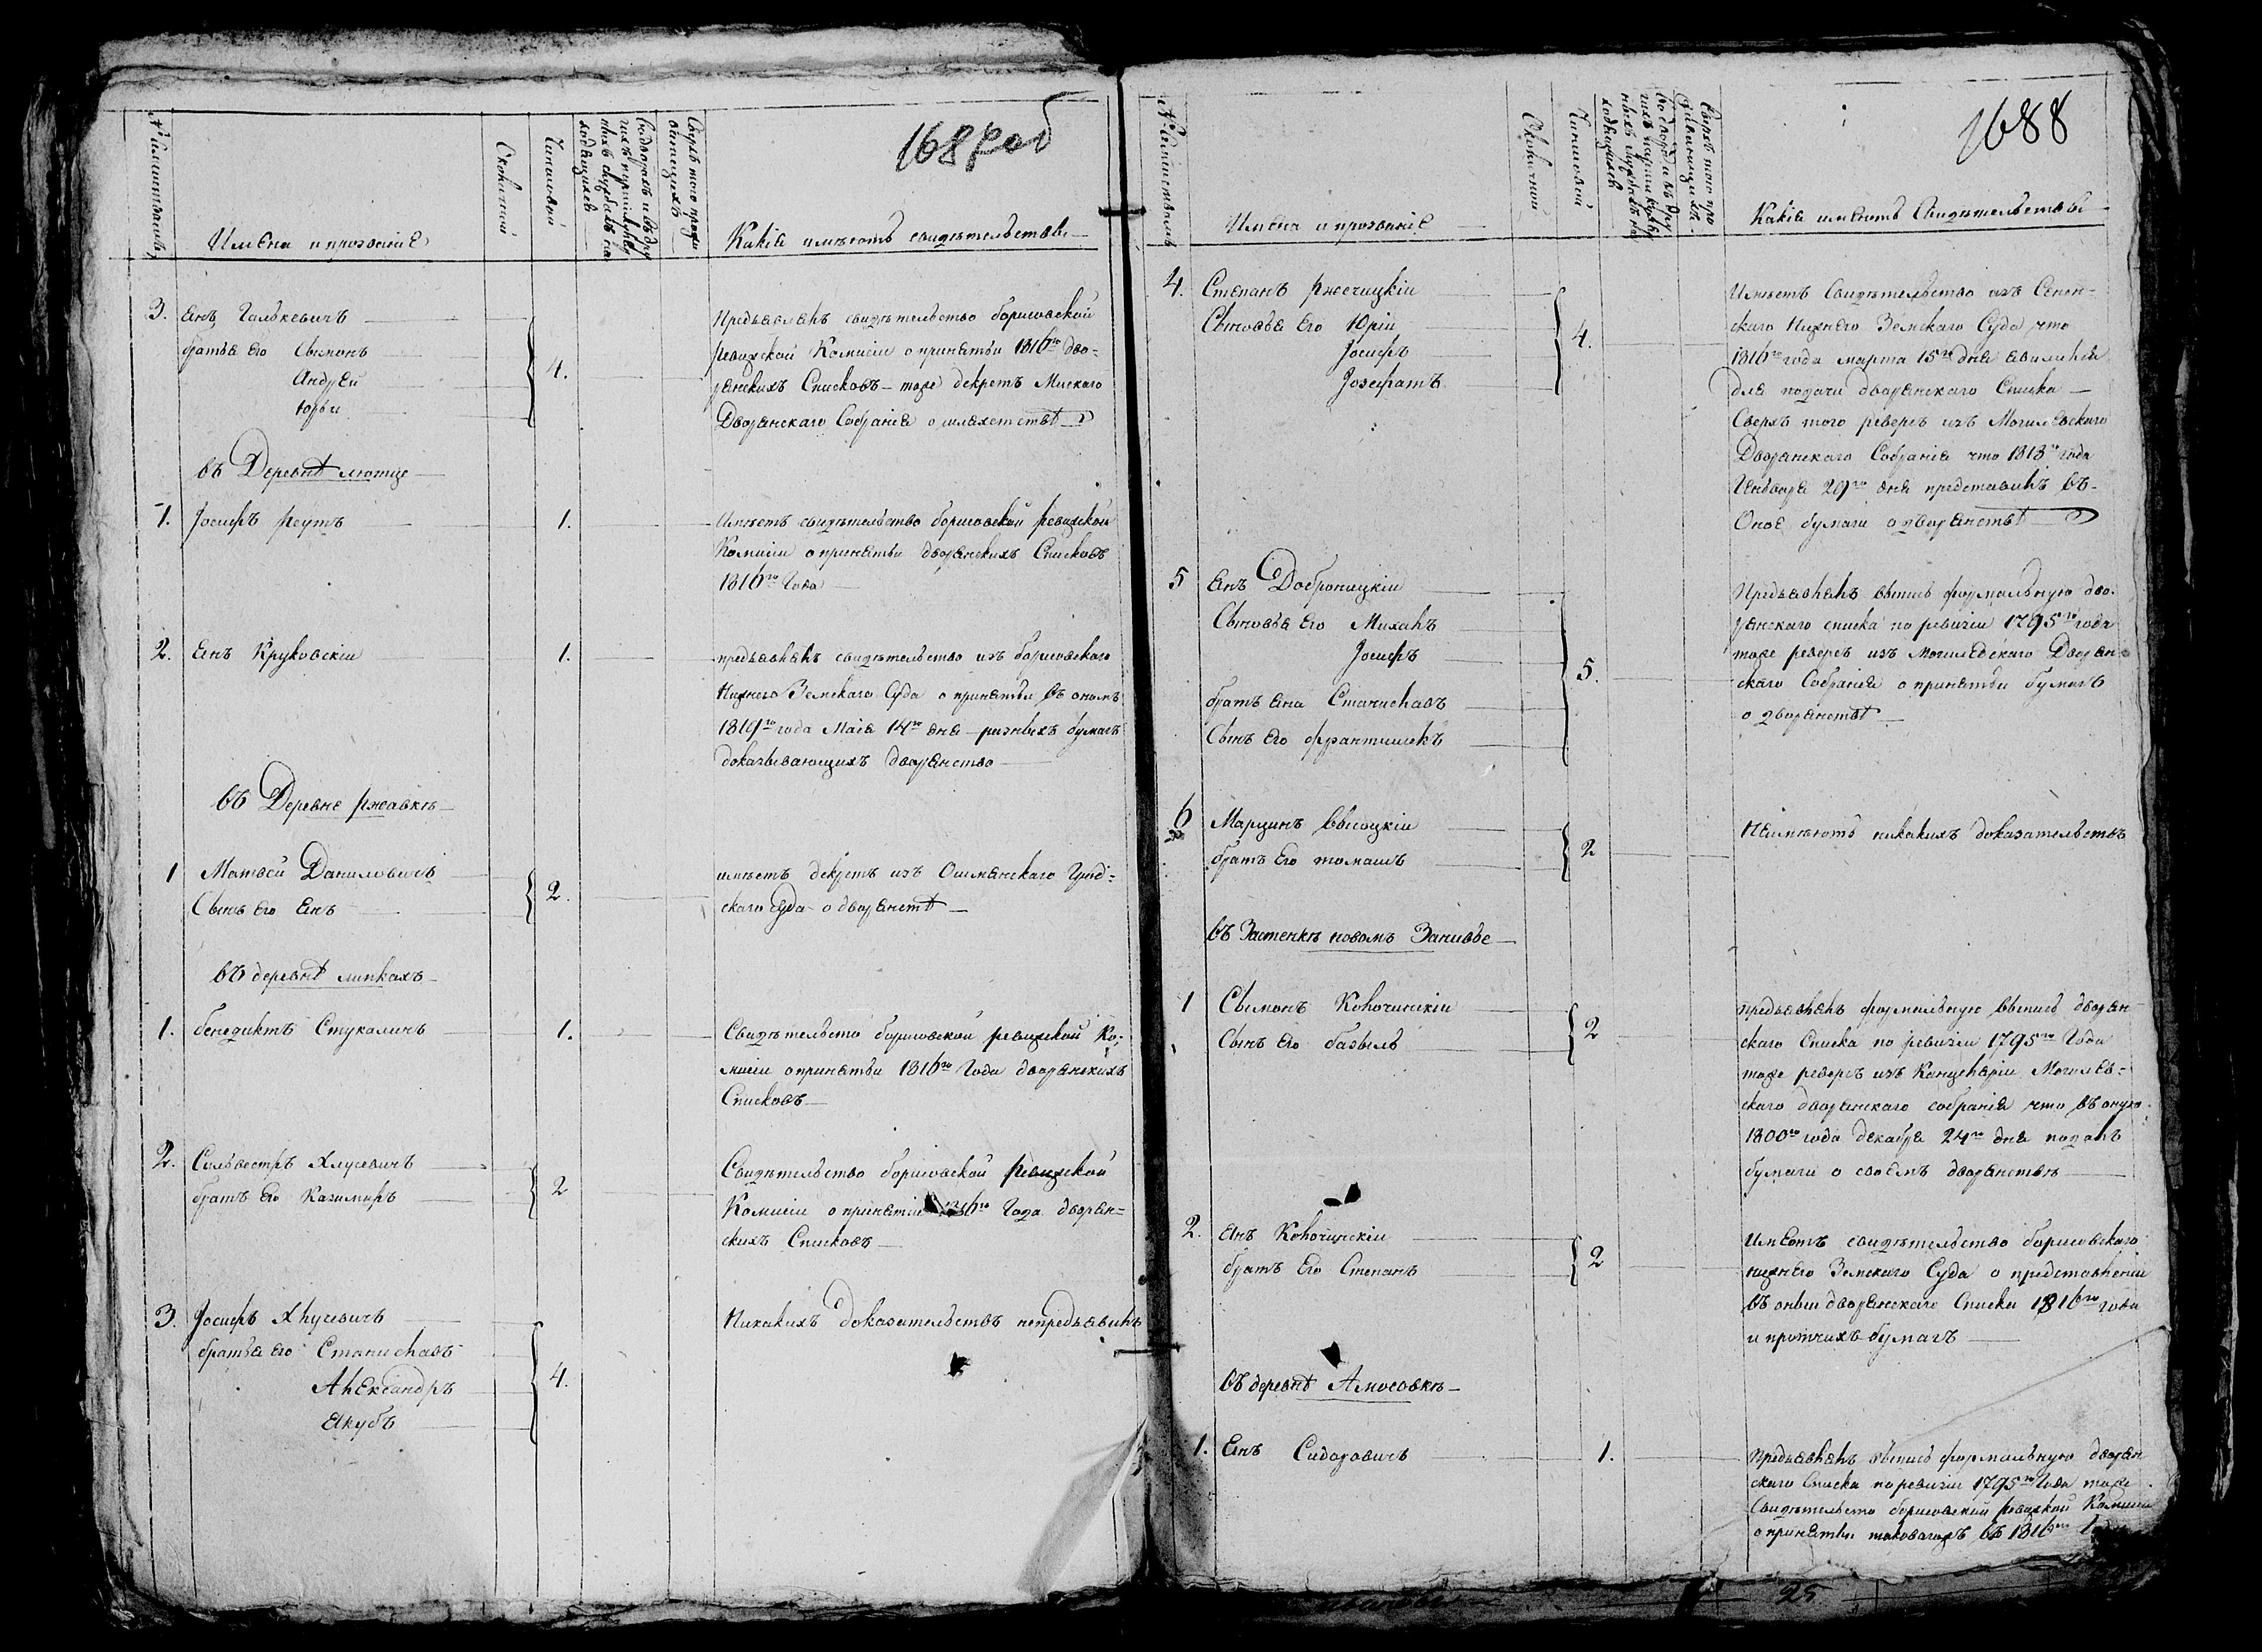 1687 об
Имена и прозваніе
Околичной
Чиншовой
Какіе имѣютъ свидѣтельствы
3. Янъ Галькевичъ
братья его Сымонъ
Андрей
Юрьи
4.
Предъявлялъ свидѣтельство борисовской
ревизской Комисіи о принятьи 1816го дво-
рянскихъ Списковъ – тоже декретъ Минскаго
Дворянскаго Собранія о шляхетствѣ
въ Деревнѣ
1. Іосифъ Реутъ
1.
Имѣетъ свидѣтельство борисовской ревизской
Комисіи о принятьи дворянскихъ Списковъ
1816го Года
2. Янъ Круковскіи
1.
предъявлялъ свидѣтельство изъ борисовскаго
Нижнего Земскаго Суда о принятьи въ ономъ
1819го года Мая 14го дня разныхъ бумагъ
доказывающихъ дворянство
въ Деревне Ржавкѣ
1 Матвей Даниловичъ
Сынъ его Янъ
2.
имѣетъ декретъ изъ Ошмянскаго Грод-
скаго Суда о дворянствѣ
въ деревнѣ липкахъ
1. бенедиктъ Стукаличъ
1.
Свидѣтельство борисовской ревизской Ко-
мисіи о принятьи 1816го Года дворянскихъ
Списковъ
2. Сильвестръ Хлусевичъ
братъ Его Казимиръ
2
Свидѣтельство борисовской Ревизской
Комисіи о принятіи 1816го Года дворян-
скихъ Списковъ
3. Іосифъ Хлусевичъ
братья его Станиславъ
Александръ
Якубъ
4.
Никакихъ доказательствъ непредъявилъ
1688
Имена и прозваніе
Околичной
Чиншовой
Какіе имѣютъ Свидѣтельствы
4. Степанъ Ржечицкіи
Сыновья Его Юріи
Іосифъ
Іозефатъ
4.
Имѣетъ Свидѣтельство изъ Сенен-
скаго Нижнего Земскаго Суда что
1816го года марта 15го дня явился
для подачи дворянскаго Списка
Сверхъ того реверсъ изъ Могилевскаго
Дворянскаго Собранія что 1813го года
Генваря 29го дня представилъ въ
Оное бумаги о дворянствѣ
5 Янъ Доброницкіи
Сыновья Его Михалъ
Іосифъ
братъ Яна Станиславъ
Сынъ Его франтишекъ
5.
Предъявлялъ выпись формальную дво-
рянскаго списка по ревизіи 1795го года
тоже реверсъ изъ Могилевскаго Дворян-
скаго Собранія о принятьи бумагъ
о дворянствѣ
6 Марцинъ Высоцкіи
братъ Его томашъ
2
Неимѣютъ никакихъ доказательствъ
въ Застенкѣ новомъ Заниввье
1 Сымонъ Колочинскіи
Сынъ Его базыль
2
предъявлялъ формальную выпись дворян
скаго Списка по ревизіи 1795го Года
тоже реверсъ изъ Канцеляріи Могилев-
скаго дворянскаго собранія что въ оную
1800го года декабря 24го дня подалъ
бумаги о своемъ дворянствѣ
2. Янъ Колочинскіи
братъ Его Степанъ
2
Имѣютъ свидѣтельство борисовскаго
нижнего Земскаго Суда о представленіи
въ оныи дворянскаго Списка 1816го года
и протчихъ бумагъ
въ деревнѣ Амосовкѣ
1. Янъ Сидоровичъ
1.
Предъявлялъ выпись формальную дворян
скаго Списка по ревизіи 1795го Года тоже
Свидѣтельство борисовской ревизкой Комисіи
о принятьи таковагожъ въ 1816мъ
25